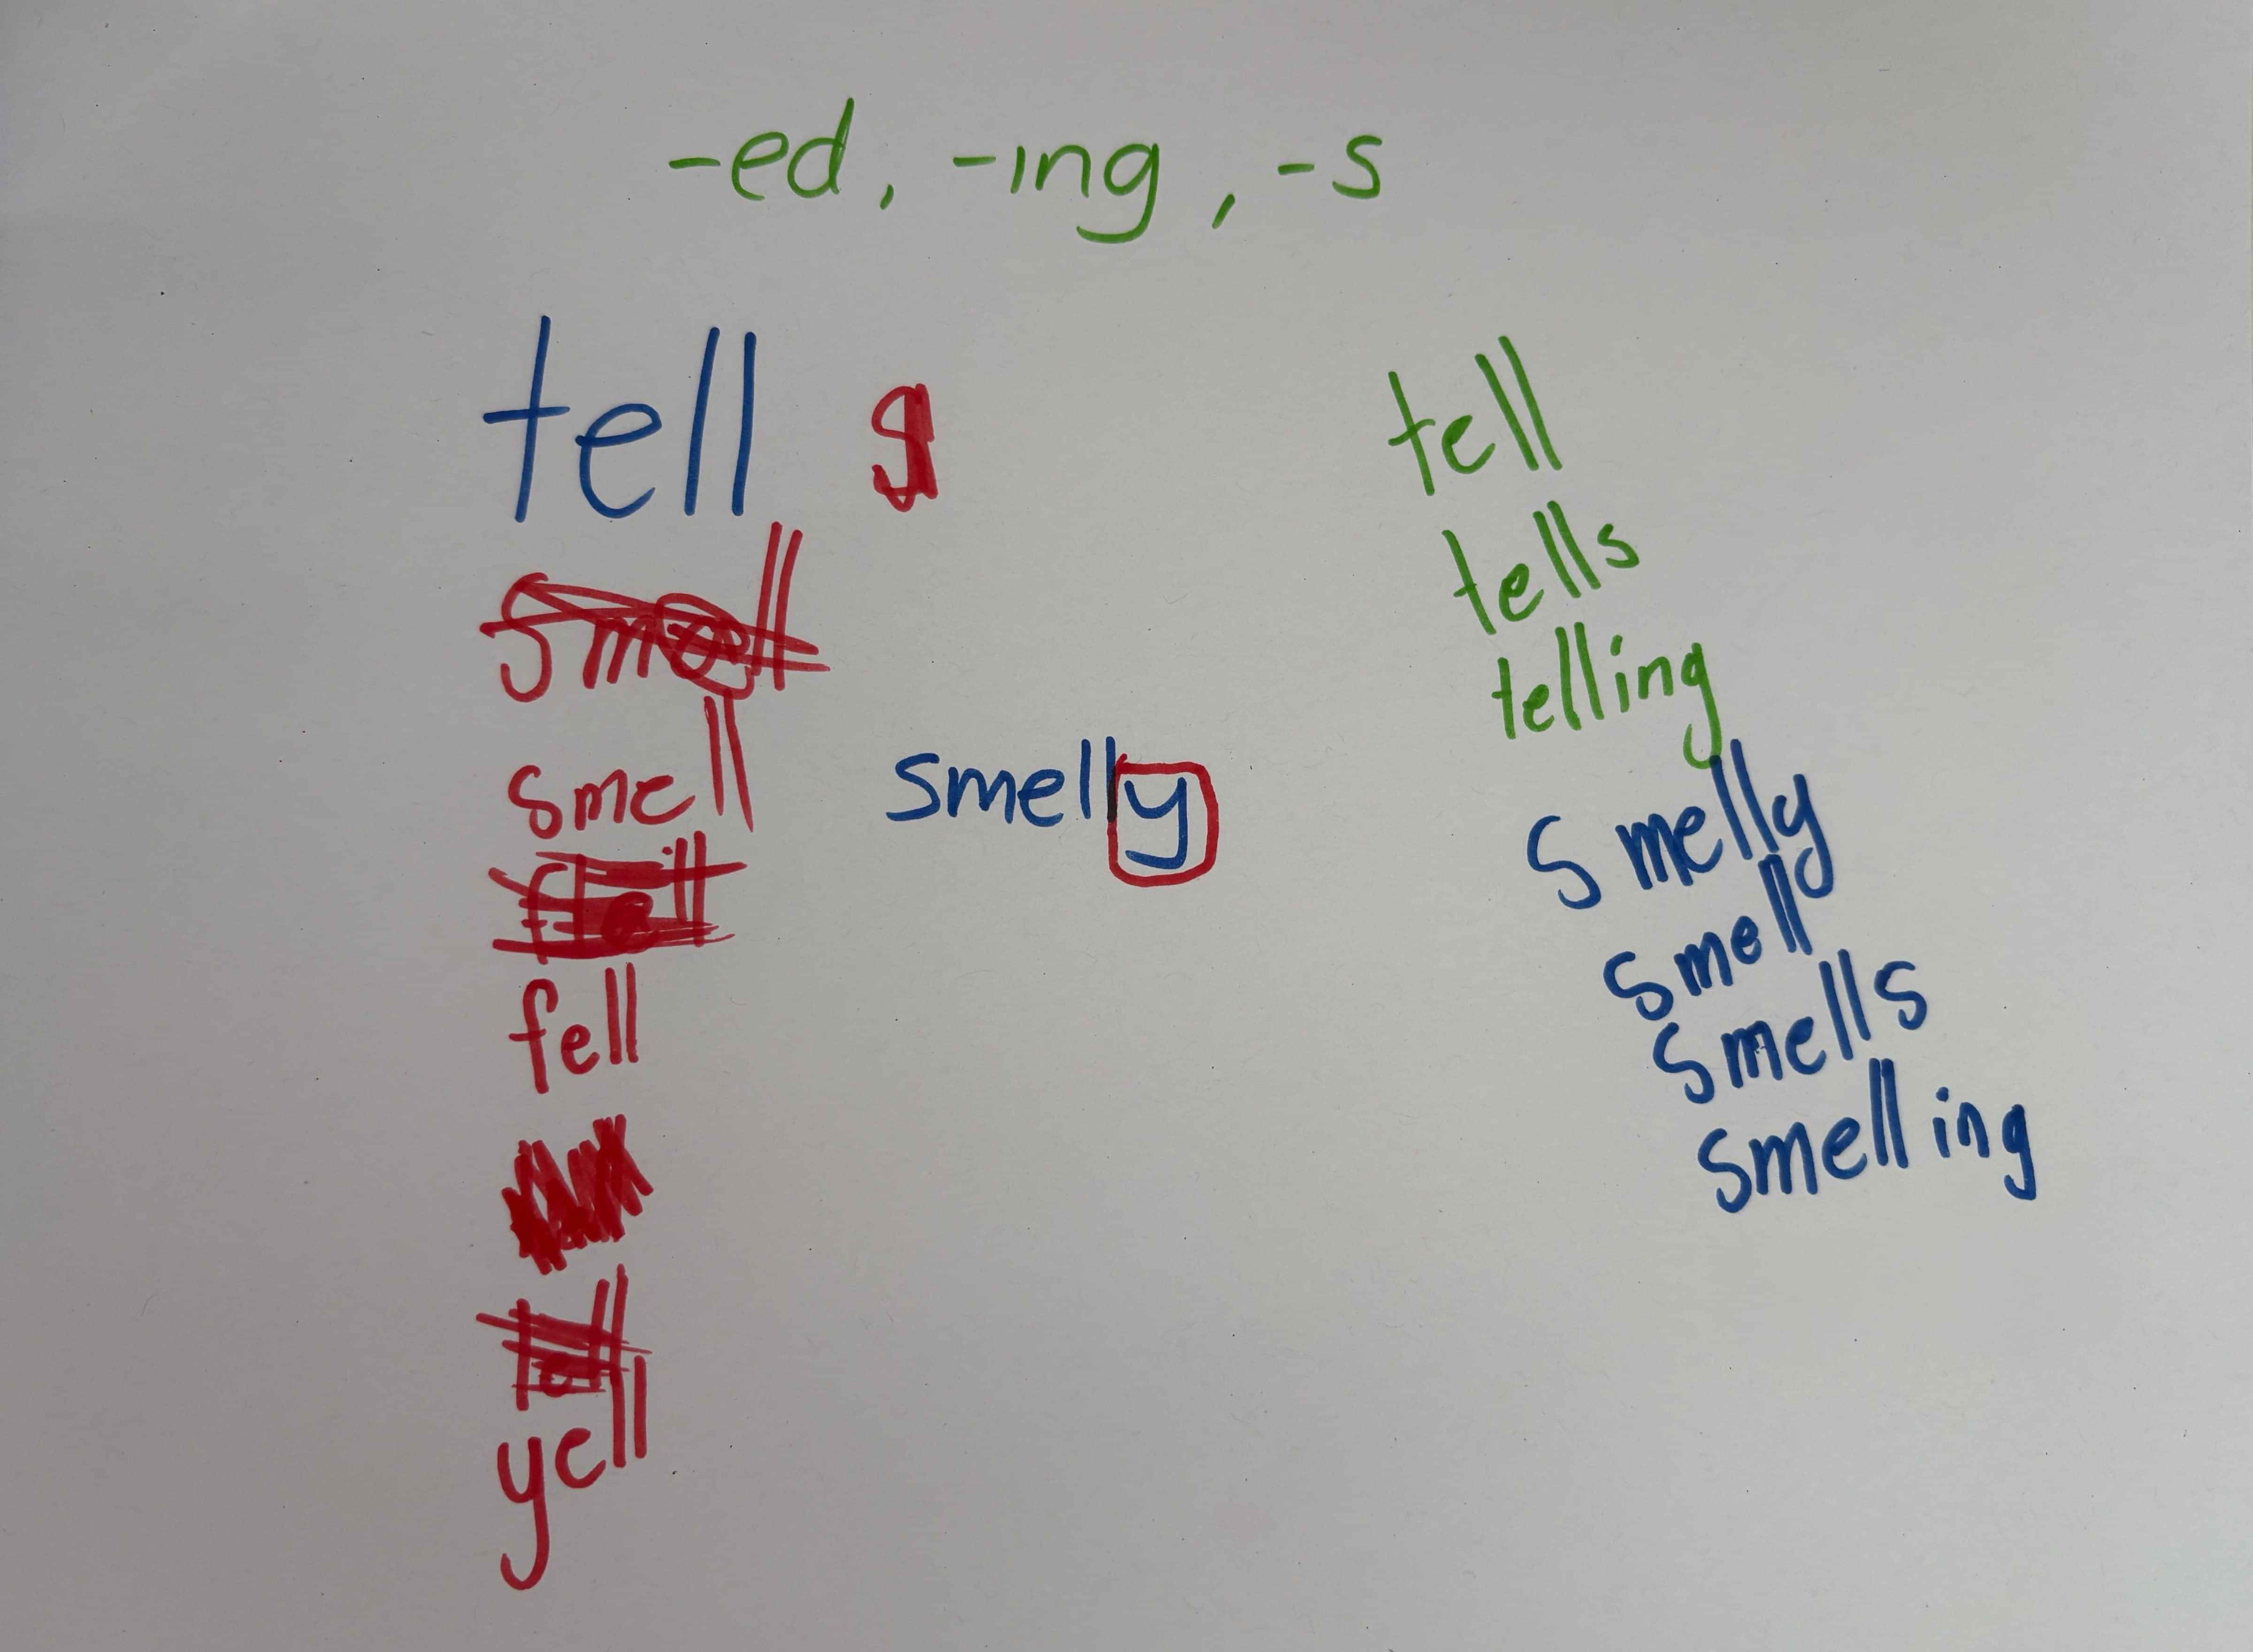 -ed, -ing, -s
tell
smell
smelly
fell
yell
tell
tells
telling
smelly
smell
smells
smelling